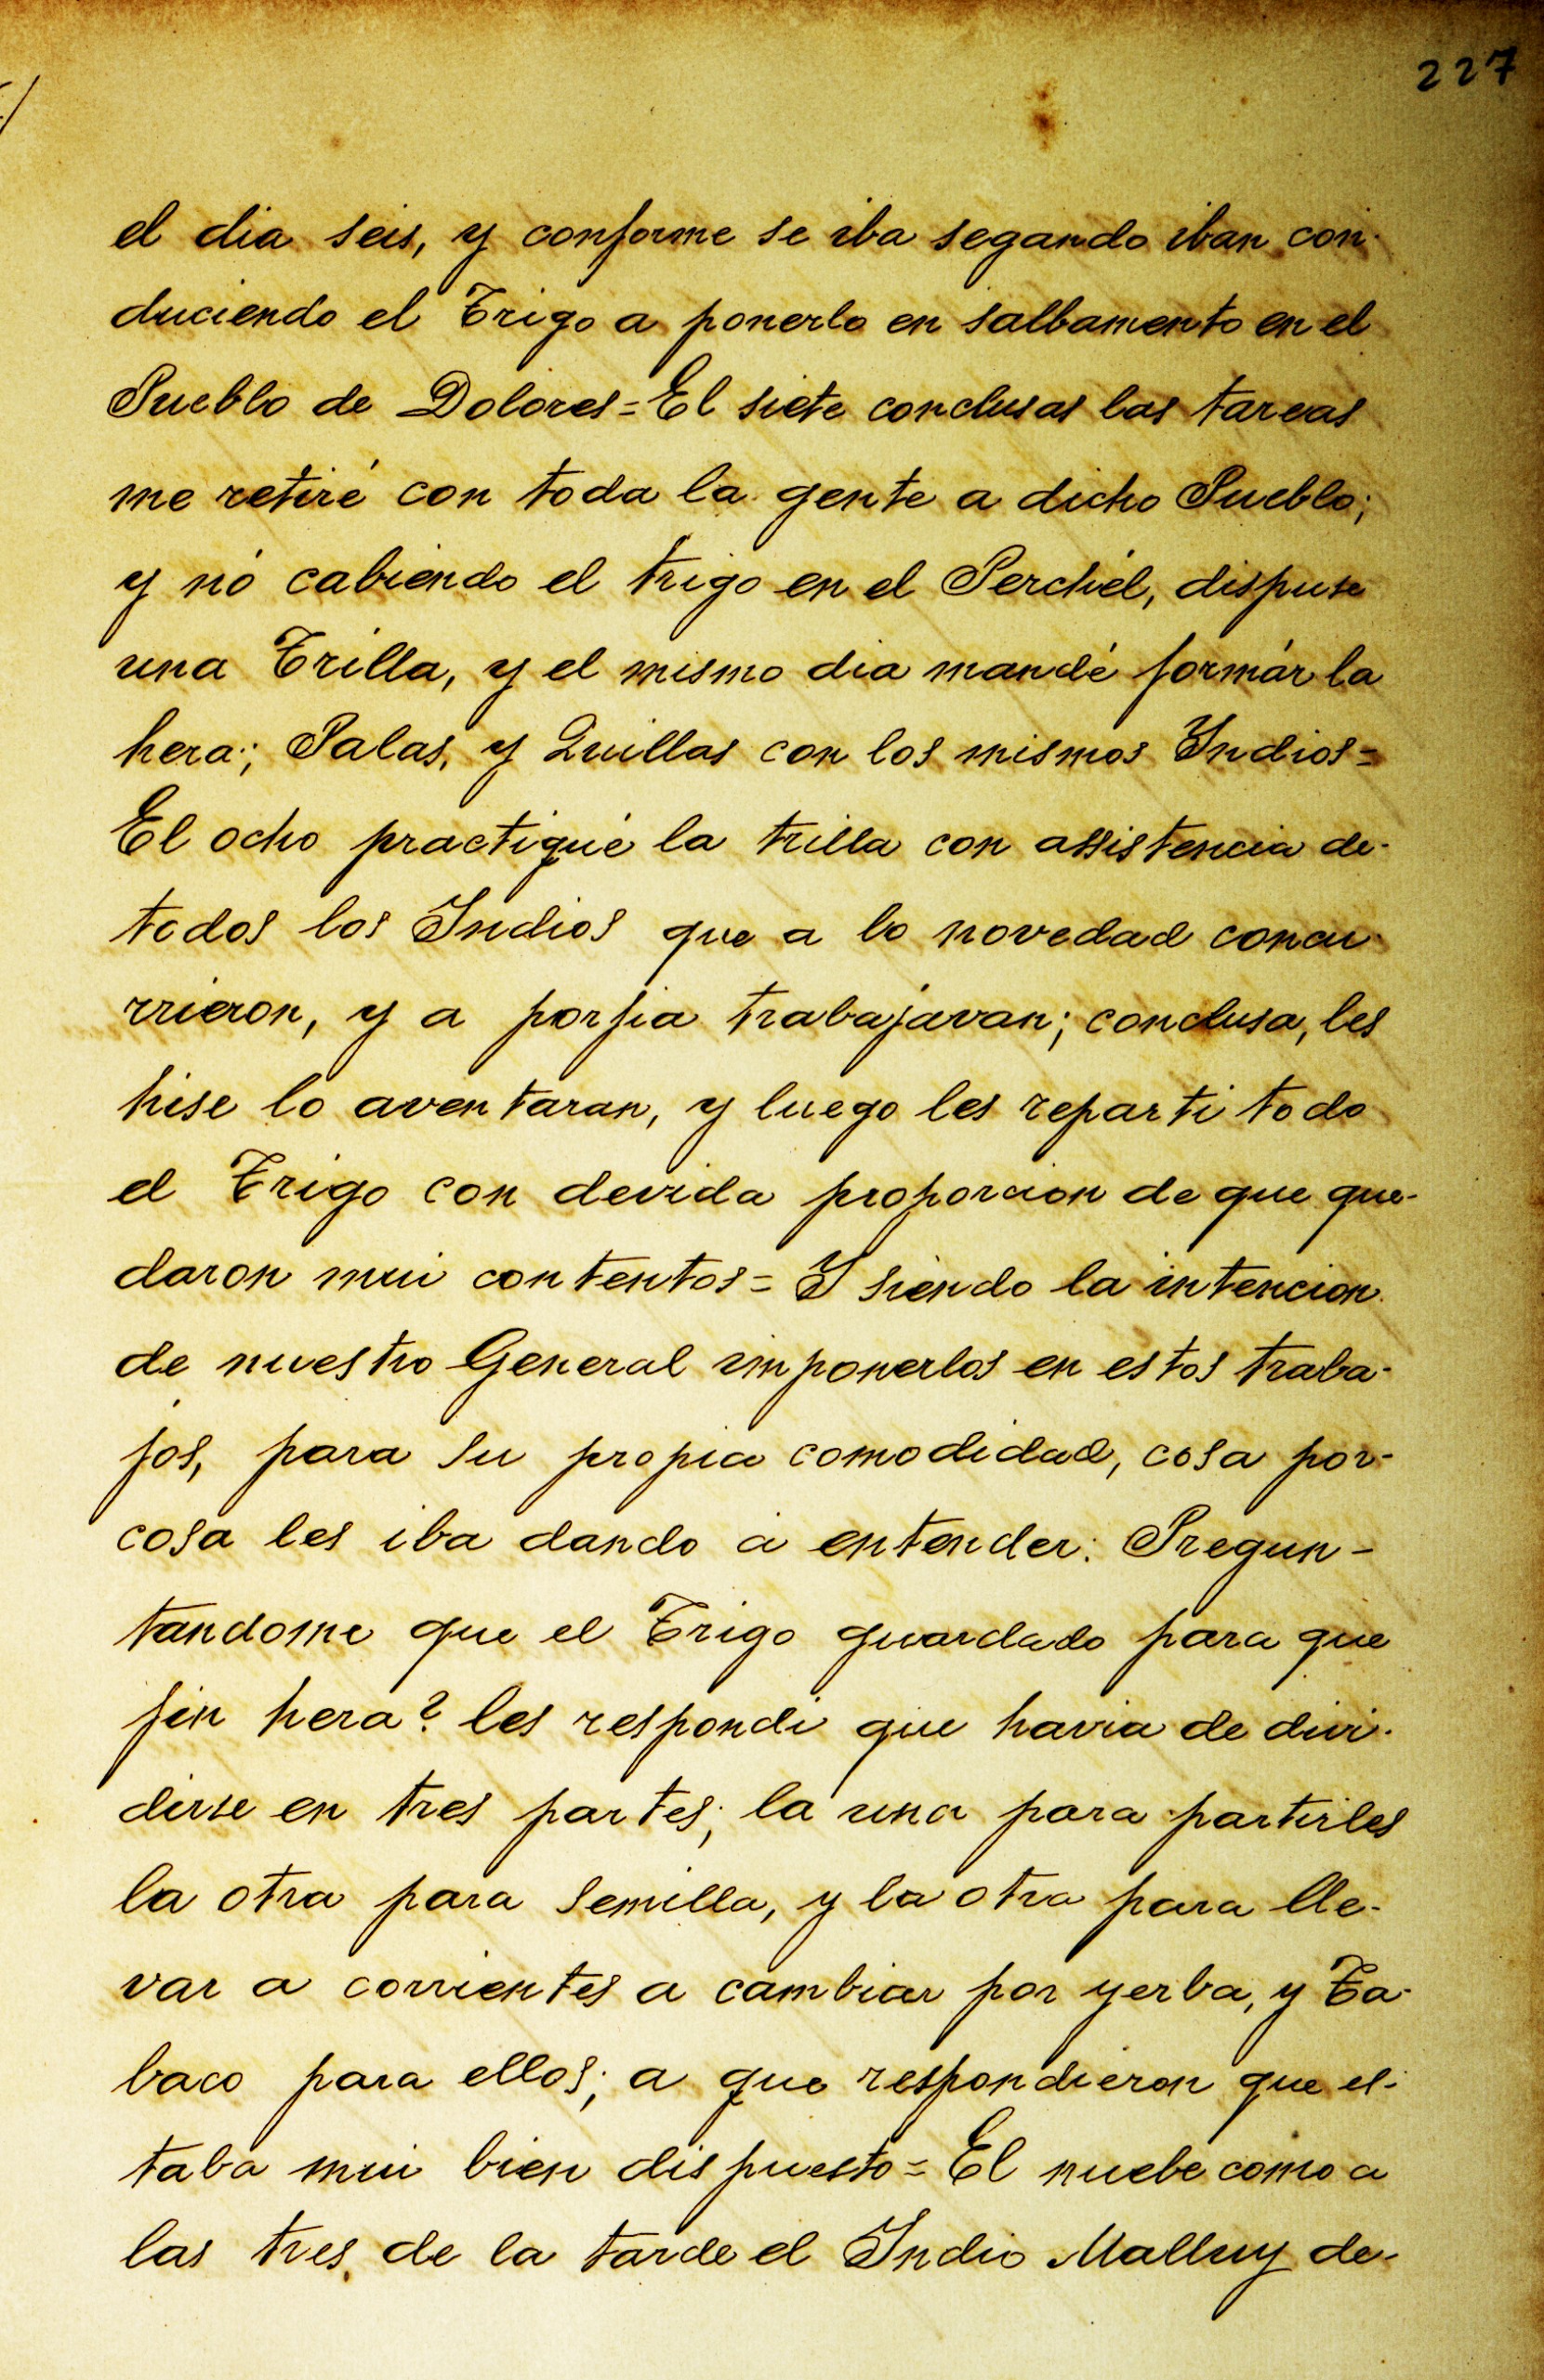 227
el dia seis, y conforme se iba segando iban con-
duciendo el Trigo a ponerlo en salbamento en el
Pueblo de Dolores= El siete conclusas las tareas
me retiré con toda la gente a dicho Pueblo;
y nó cabiendo el trigo en el Perchél, dispuse
una Trilla, y el mismo dia mandé formár la
hera; Palas, y Quillas con los mismos Yndios=
El ocho practiqué la trilla con assistencia de-
todos los Yndios que a lo novedad concu-
rrieron, y a porfia trabajavan; conclusa, les
hise lo aventaran, y luego les reparti todo
el Trigo con devida proporcion de que que-
daron mui contentos= Y siendo la intencion
de nuestro General imponerlos en estos traba-
jos, para su propia comodidad, cosa por-
cosa les iba dando á entender: Pregun-
tandome que el Trigo guardado para que
fin hera? les respondi que havia de divi-
dirse en tres partes; la una para partirles
la otra para semilla, y la otra para lle-
var a corrientes a cambiar por yerba, y Ta-
baco para ellos; a que respondieron que es-
taba mui bien dispuesto= El nuebe como a
las tres de la tarde el Yndio Malluy de-